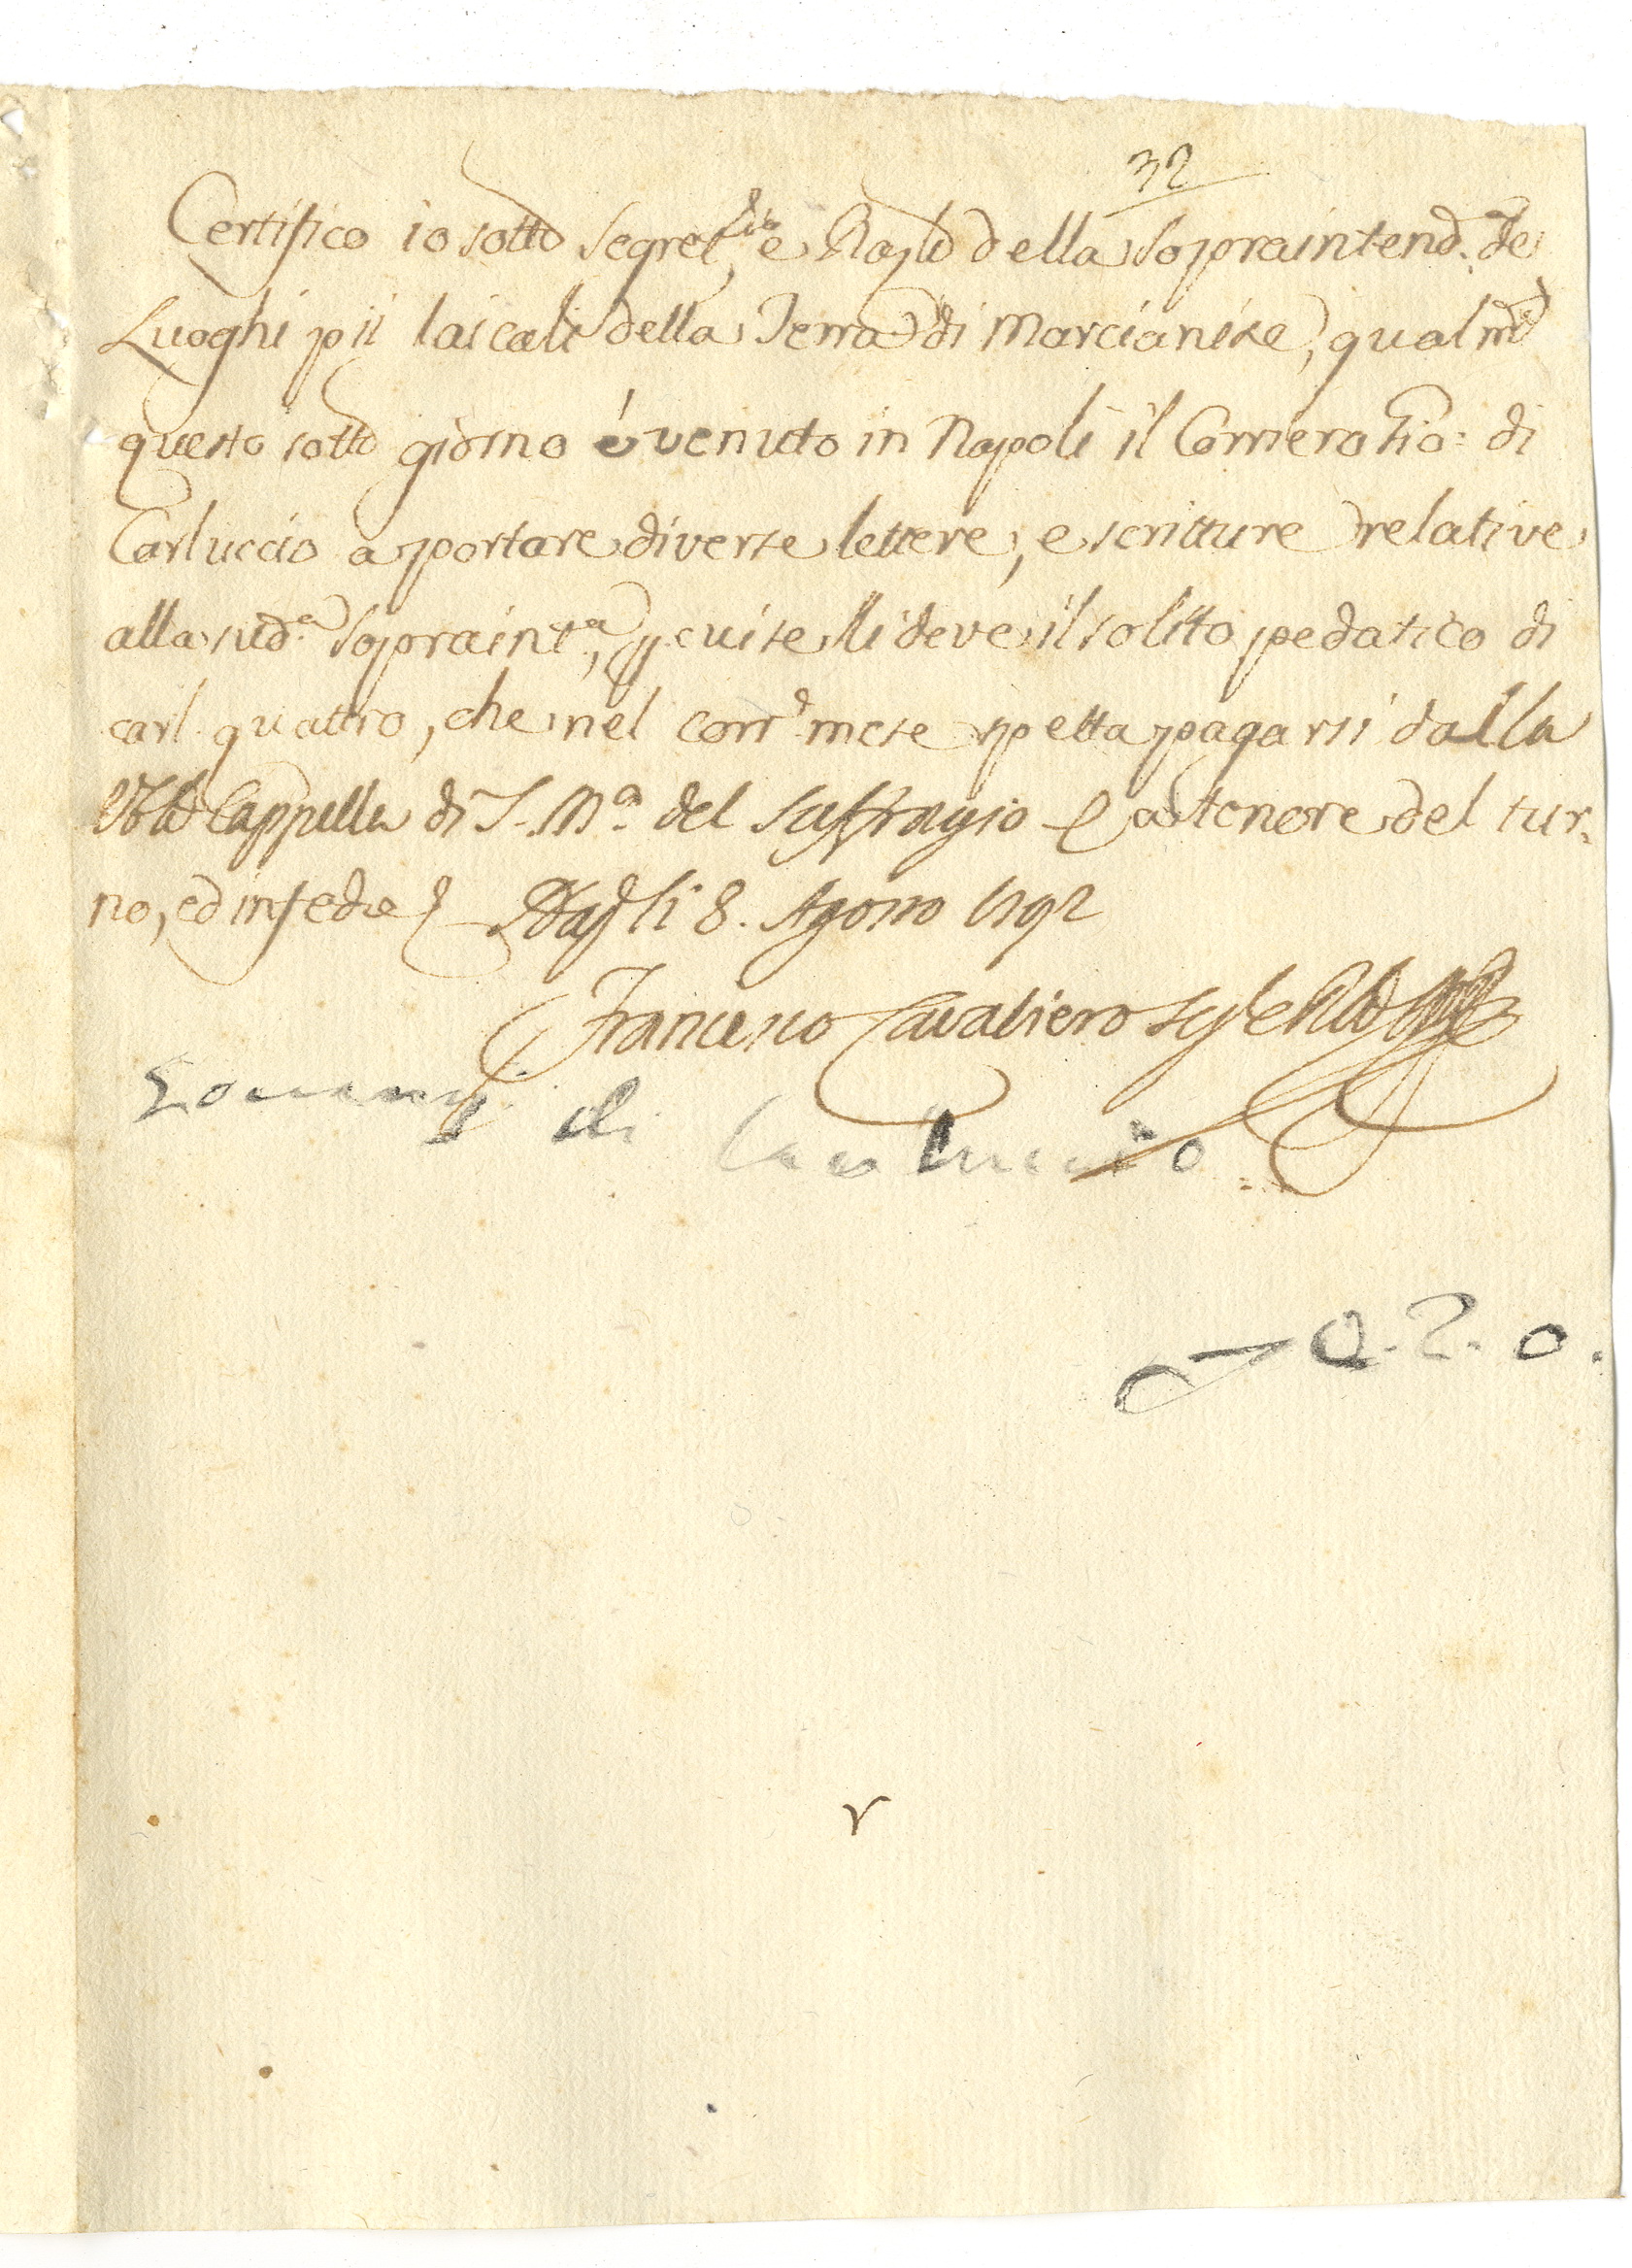 32
Certifico io sotto Segret.rio e Raz.le della Sopraintend. de
Luoghi pii laicali della Terra di Marcianise, qualm.e
questo sotto giorno è venuto in Napoli il Corriero Gio: di
Carluccio a portare diverse lettere, e scritture relative
alla sud.a Sopraint.a, p. cui se li deve il solito pedatico di
carl. quattro, che nel corr.e mese spetta pagarsi dalla
Cappella di S. M.a del Suffragio a tenore del tur-
no, ed in fede Nap. li 8. Agosto 1792
Francesco Cavaliero
di Carluccio
0.2.0.